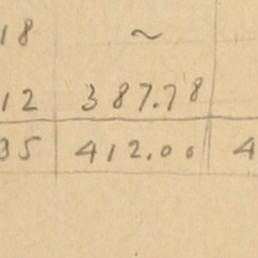 18 ~
12 387.78
35 412.00 4